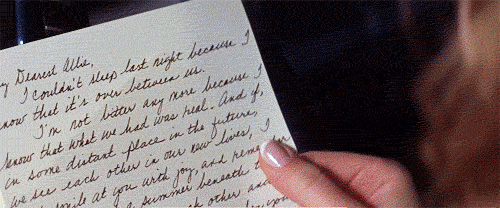 y Dearest Allie,
I couldn't sleep last night because I
know that it's over between us.
I'm not bitter any more because I
know that what we had was real. And if,
in some distant place in the future,
we see each other in our new lives, I
smile at you with joy and remem
a summer beneath
other and
you